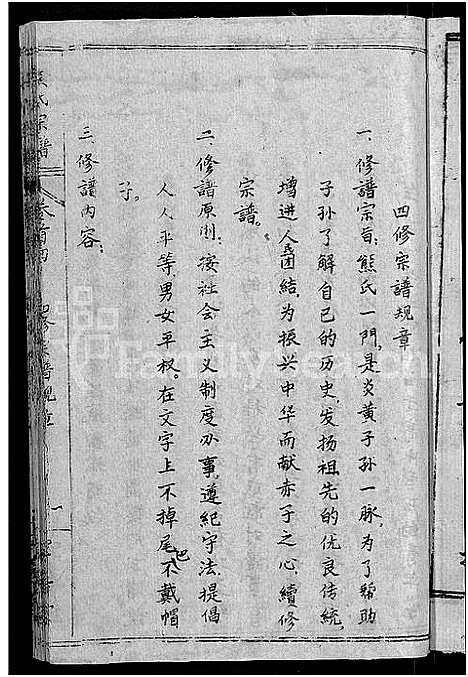 四修宗谱规章
一、修谱宗旨：熊氏一门，是炎黄子孙一脉，为了帮助
子孙了解自己的历史，发扬祖先的优良传统，
增进人民团结，为振兴中华而献赤子之心，续修
宗谱。
二、修谱原则：按社会主义制度办事，遵纪守法，提倡
人人平等，男女平权。在文字上不掉尾巴不戴帽
子。
三、修谱内容：
氏宗谱 卷首四
FamilySearch